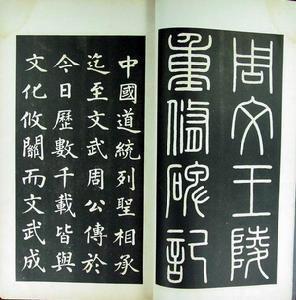 周文王陵
重修碑記
中國道統列聖相承
迄至文武周公傳於
今日歷數千載皆與
文化攸關而文武成